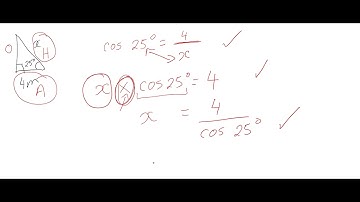 O x H
25°
4m A
cos 25° = 4/x
x × cos 25° = 4
x = 4/cos 25°